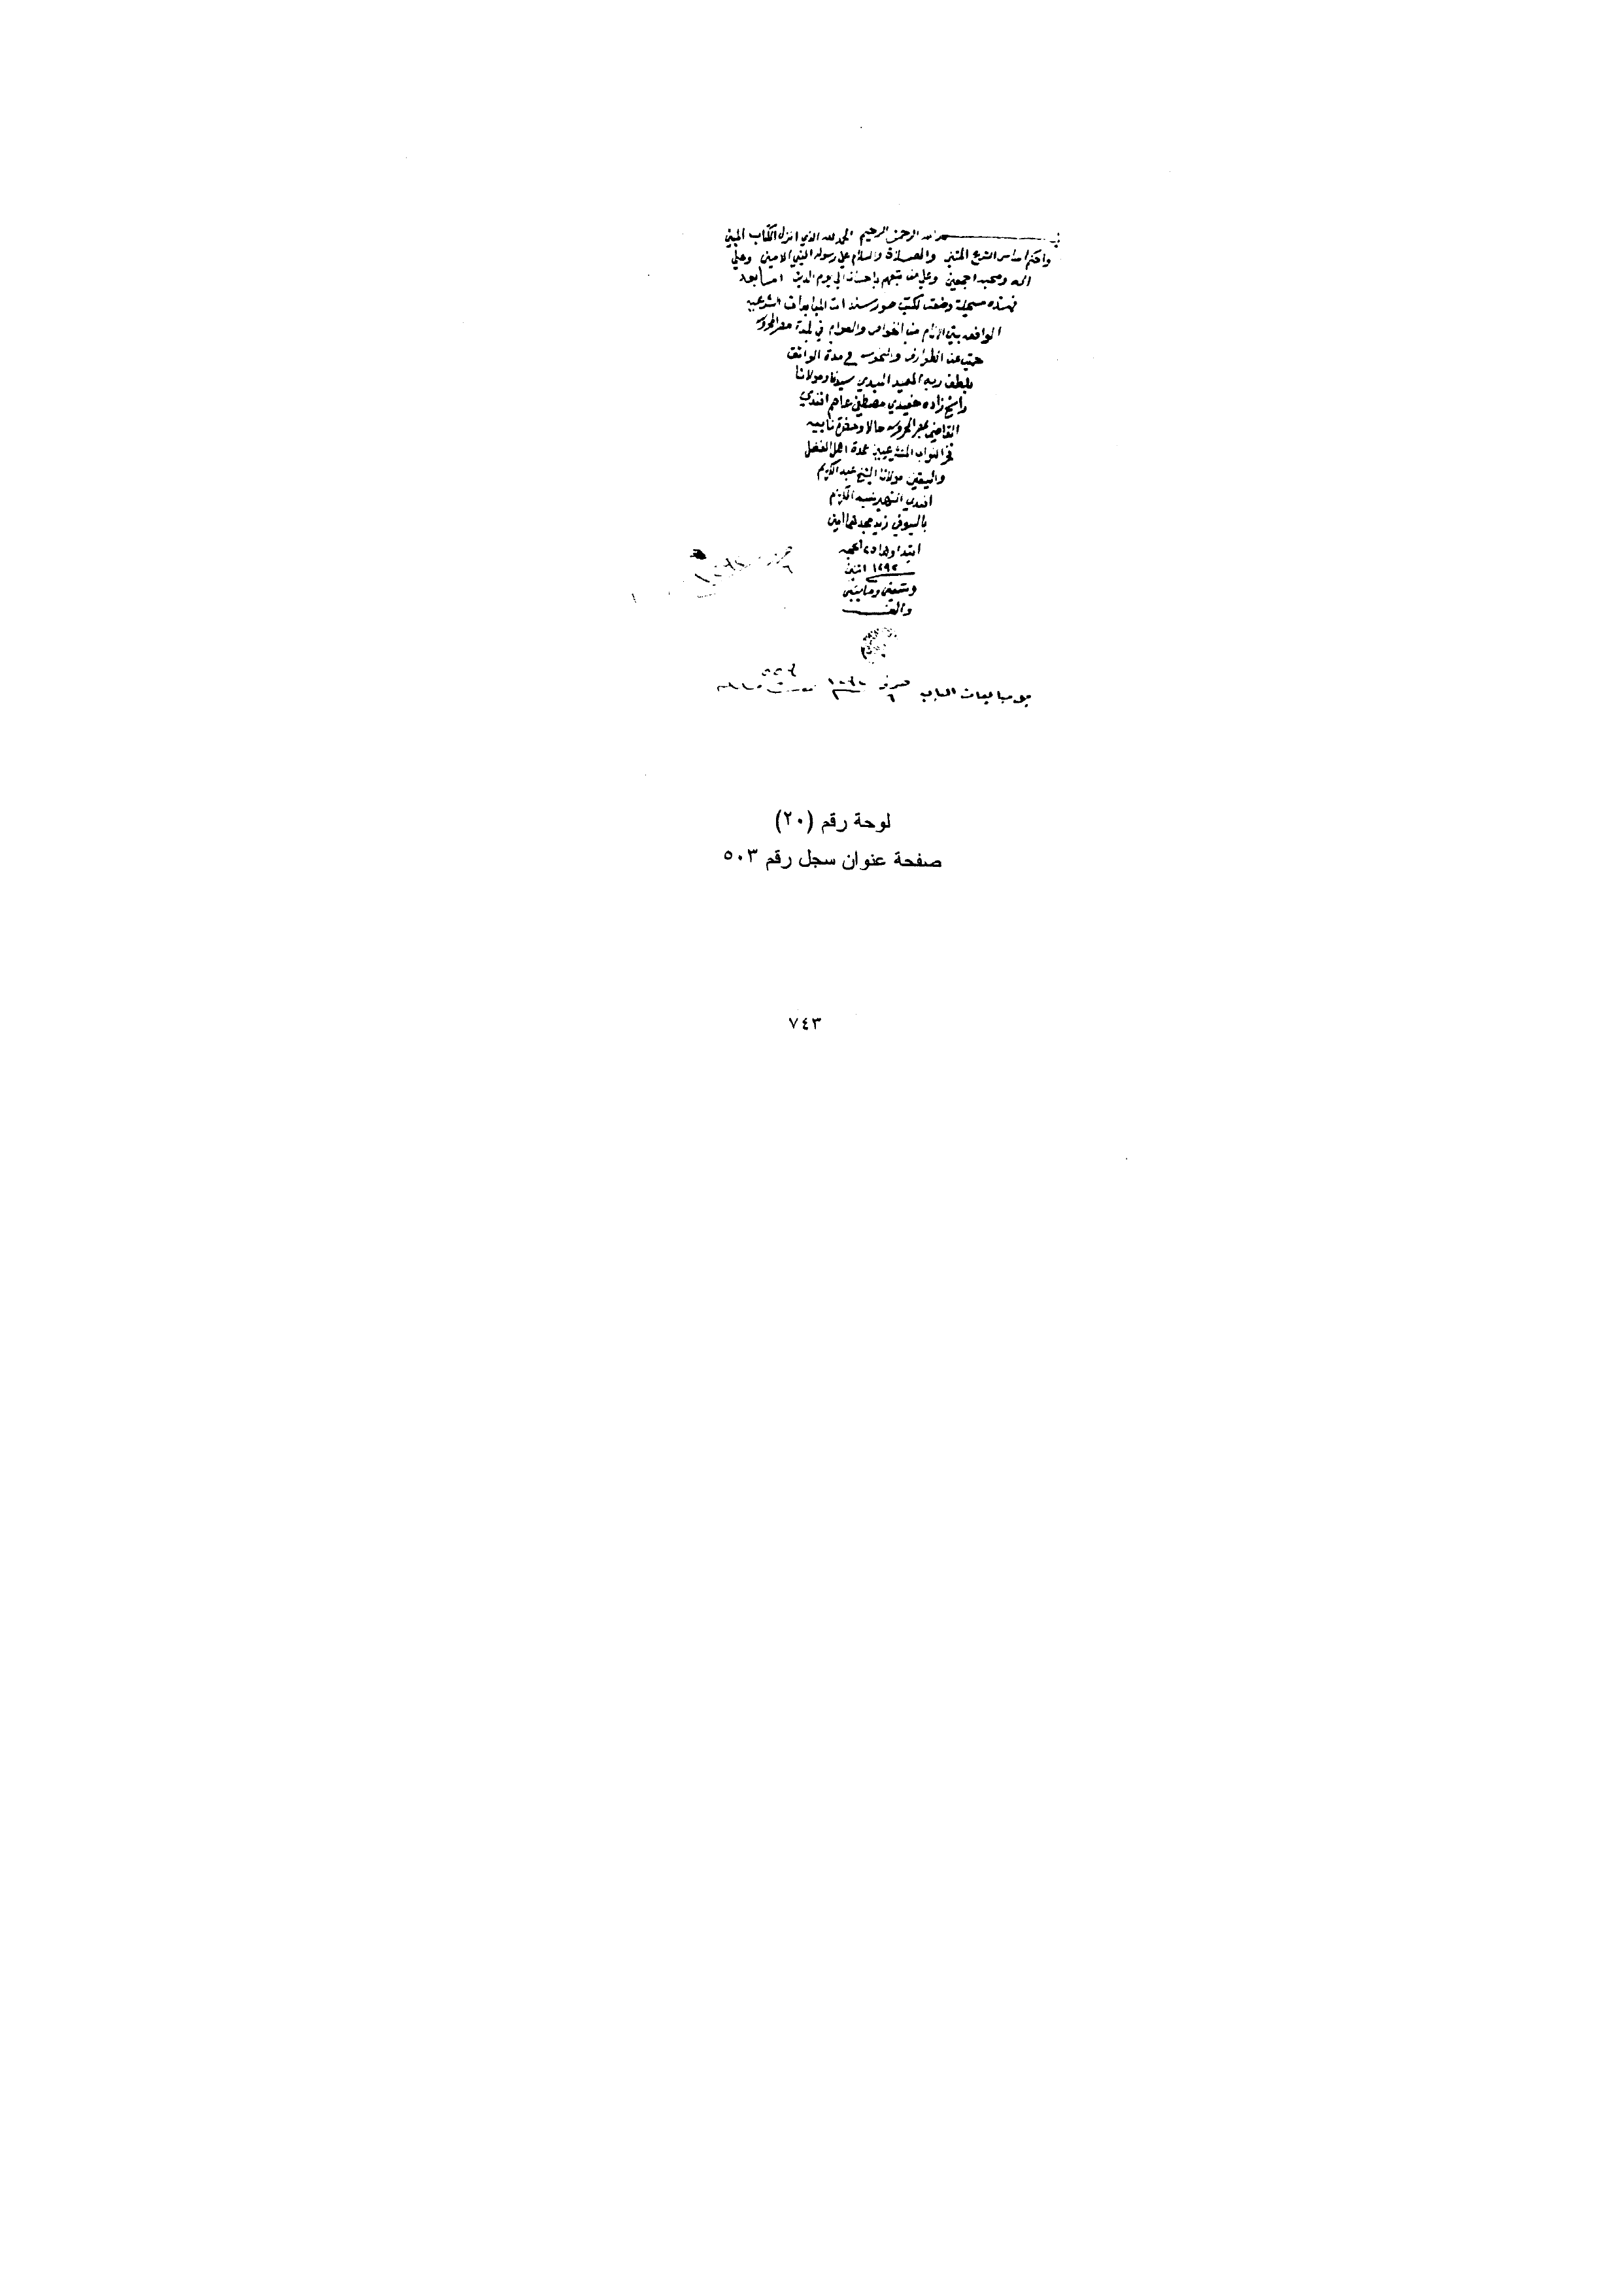 بسم الله الرحمن الرحيم الحمد لله الذي انزل الكتاب المبين
واحكم اساس الشرع المتين والصلاة والسلام علي رسوله النبي الامين وعلي
اله وصحبه اجمعين وعلي من تبعهم باحسان الي يوم الدين اما بعد
فهذه سجلة وضعت لكتب صور سندات المبايعات الشرعيه
الواقعه بين الانام من الخواص والعوام في مدة مصر المحروسه
حميت عن الطوارق والنحوس في مدة الواثق
بلطف ربه المعيد المبدي سيدنا ومولانا
راسخ زاده حفيدي مصطفي عاصم افندي
القاضي بمصر المحروسه حالا وحضرة نايبه
فخر النواب المتشرعين عمدة اهل الفضل
واليقين مولانا الشيخ عبد الكريم
افندي الشهير نسبه الكريم
بالسيوفي زيد مجدهما امين
ابتداوها الحجه
١٢٩٢ اثنين
وتسعين ومايتين
والف
مبايعات الباب
لوحة رقم (٢٠)
صفحة عنوان سجل رقم ٥٠٣
٧٤٣